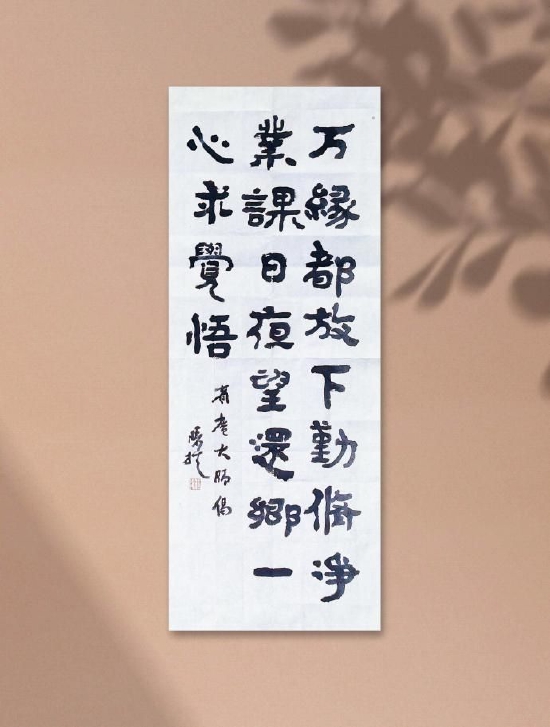 万緣都放下勤脩淨
業課日夜望還鄉一
心求覺悟
大師偈